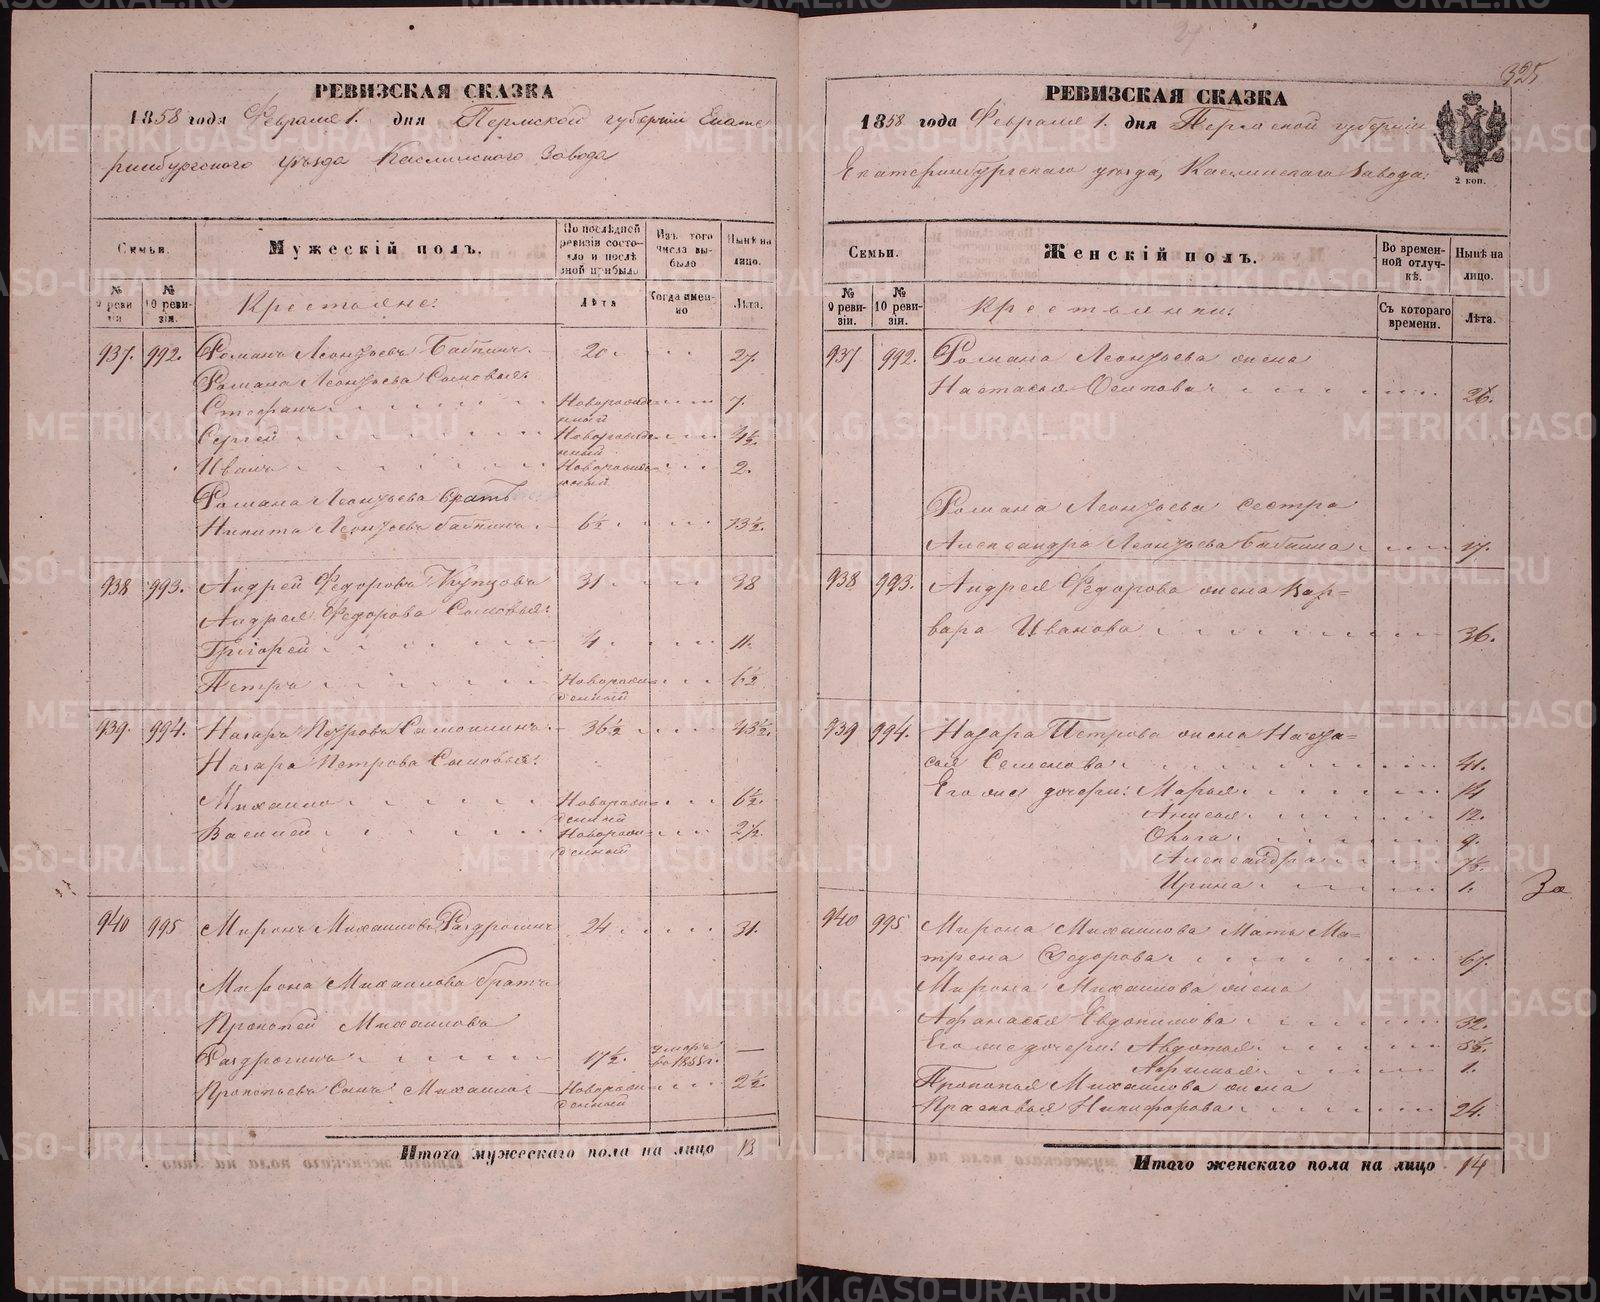 325
РЕВИЗСКАЯ СКАЗКА
1858 года Февраля 1. дня Пермской губерніи Екате
ринбургскаго уѣзда Каслинскаго Завода
Семьи.
Мужескій полъ.
По послѣдней ревизіи состояло и послѣ оной прибыло
Изъ того числа выбыло
Нынѣ на лицо.
№ 9 ревизіи
№ 10 ревизіи.
Крестьяне:
Лѣта
Когда именно
Лѣта.
937. 992. Романъ Леонтьевъ Бабкинъ 20 27.
Романа Леонтьева Сыновья:
Стефанъ Новорожденный 7.
Сергей Новорожденный 4½
Иванъ Новорожденный 2.
Романа Леонтьева братъ
Никита Леонтьевъ Бабкинъ 6½ 13½.
938 993. Андрей Федоровъ Купцовъ 31 38
Андрея Федорова Сыновья:
Григорей 4 11.
Петръ Новорожденный 6½
939. 994. Назаръ Петровъ 36½ 43½.
Назара Петрова Сыновья:
Михаило Новорожденный 6½.
Василей Новорожденный 2½
940 995 Миронъ Михаиловъ Раздрогинъ 24 31.
Мирона Михаилова братъ
Прокопей Михаиловъ
Раздрогинъ 17½. умеръ въ 1855г. —
Прокопьевъ Сынъ Михаило Новорожденный 2½.
Итого мужескаго пола на лицо 13
РЕВИЗСКАЯ СКАЗКА
1858 года Февраля 1. дня Пермской губерніи
Екатеринбургскаго уѣзда, Каслинскаго Завода:
2 коп.
Семьи.
Женскій полъ.
Во временной отлучкѣ.
Нынѣ на лицо.
№ 9 ревизіи.
№ 10 ревизіи.
Крестьянки:
Съ котораго времени.
Лѣта.
937 992. Романа Леонтьева жена
Настасья Осипова 26.
Романа Леонтьева сестра
Александра Леонтьева Бабкина 17.
938 993. Андрея Федорова жена Вар=
вара Иванова 36.
939 994. Назара Петрова жена Наста=
сья Семенова 41.
Его же дочери: Марья 14
Анисья 12.
Ольга 9.
Александра
Ирина 1.
За
940 995 Мирона Михаилова Мать Ма=
трена Федорова 67.
Мирона Михаилова жена
Афанасья Евдокимова 32.
Его же дочери: Авдотья 5½.
1.
Прокопья Михаилова жена
Прасковья Никифорова 24.
Итого женскаго пола на лицо 14
METRIKI.GASO-URAL.RU